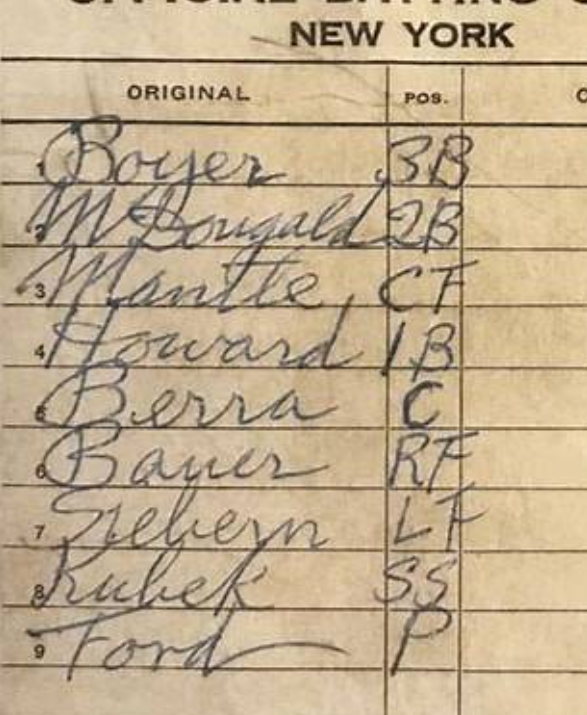 NEW YORK
ORIGINAL POS.
1 Boyer 3B
2 McDougald 2B
3 Mantle CF
4 Howard 1B
5 Berra C
6 Bauer RF
7 Siebern LF
8 Kubek SS
9 Ford P